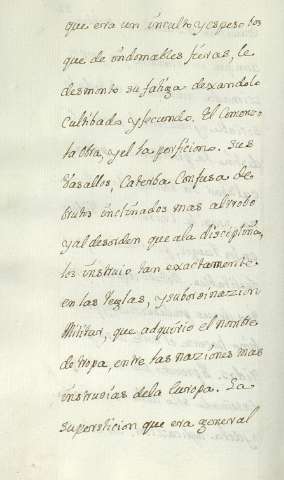 que erra un inculto y espeso bos
que de indomables fieras, le
desmonto su fatiga dexandole
Cultibado y fecundo. El Comenzo
la obra, y el la perficiono. Sus
Vasallos, Caterba Confusa de
brutos inclinados mas al robo
y al desorden que a la disciplina,
los instruio tan exactamente
en las Reglas, y subordinazion
Militar, que adquirio el nombre
de tropa, entre las naziones mas
instruidas de la Europa. La
supersticion que era general